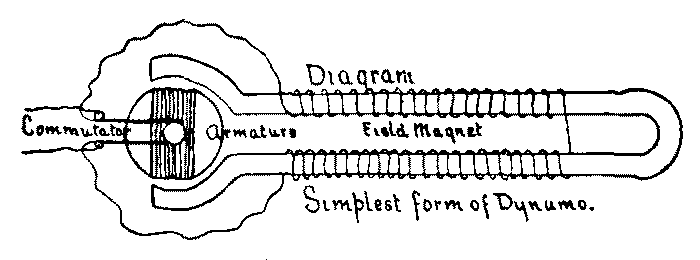 Diagram
Commutator
Armature
Field Magnet
Simplest form of Dynamo.